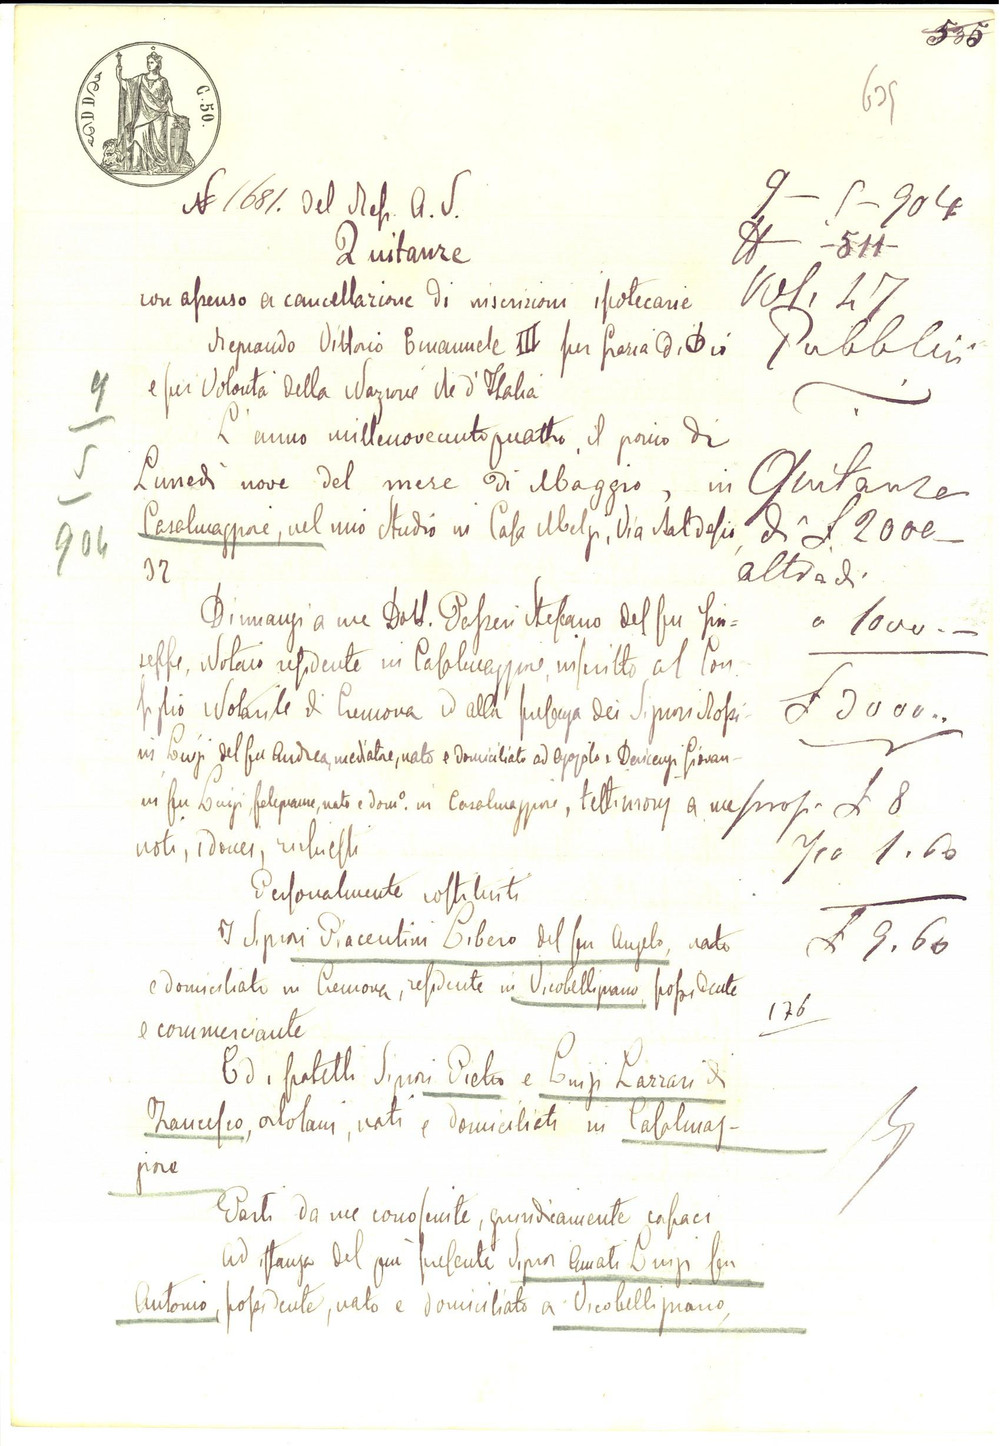 535
639
C. 50.
N 1681. del Rep. A. S.
Quitanze
con assenso a cancellazione di inscrizioni ipotecarie
Regnando Vittorio Emanuele III per grazia di Dio
e per Volontà della Nazione Re d'Italia
L'anno millenovecentoquattro, il giorno di
Lunedì nove del mese di Maggio, in
Casalmaggiore, nel mio Studio in Casa Melgi, Via Baldesio,
32
Dinnanzi a me Dott. Passeri Stefano del fu Giu=
seppe, Notaio residente in Casalmaggiore, inscritto al Con-
siglio Notarile di Cremona ed alla presenza dei Signori Rossi-
ni Luigi del fu Andrea, mediatore, nato e domiciliato ad
e Giovan-
ni fu Luigi, falegname, nato e dom°. in Casalmaggiore, testimonj a me
noti, idonei, richiesti
Personalmente costituiti
I Signori Piacentini Libero del fu Angelo, nato
e domiciliato in Cremona, residente in Vicobellignano, possidente
e commerciante
Ed i fratelli Signori Pietro e Luigi Lazzari di
Francesco, ortolani, nati e domiciliati in Casalmag-
giore
Parti da me conosciute, giuridicamente capaci
Ad istanza del quì presente Signor Amati Luigi fu
Antonio, possidente, nato e domiciliato a Vicobellignano,
9
5
904
9 - 5 - 904
- 511 -
Vol. 47
Pubblici
Quitanze
di £ 2000 -
altra di
" 1000. -
£ 3000..
prop. £ 8
1.60
£ 9.60
176